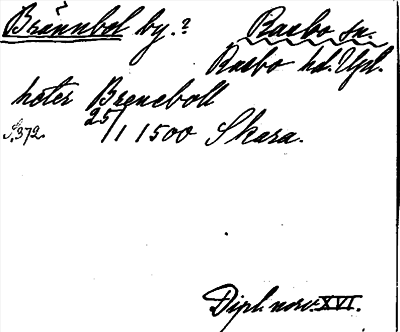 Brännbol by.? Rasbo sn.
Rasbo hd. Upl.
hoter Breneboll
S. 372. 25/1 1500 Skara.
Dipl. norv. XVI.